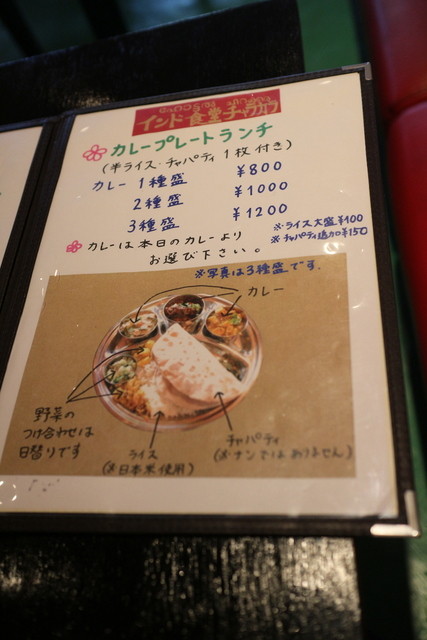 インド食堂チャラカラ
カレープレートランチ
(半ライス・チャパティ1枚付き)
カレー1種盛 ¥800
2種盛 ¥1000
3種盛 ¥1200
※ライス大盛¥100
※チャパティ追加¥150
カレーは本日のカレーより
お選び下さい。
※写真は3種盛です.
カレー
野菜の
つけ合わせは
日替りです
ライス
(※日本米使用)
チャパティ
(※ナンではありません)